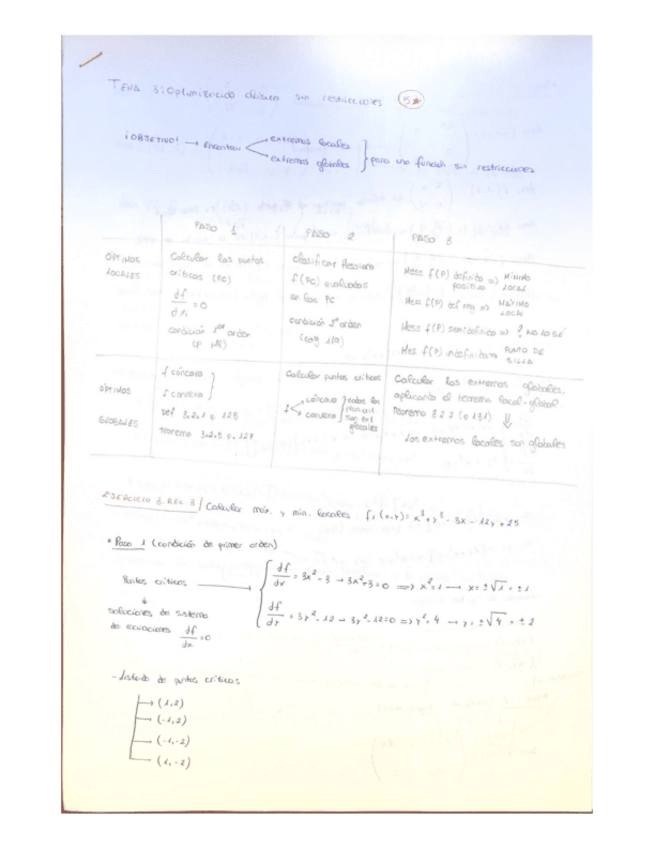 TEMA 3: Optimización clásica sin restricciones 5*
¡OBJETIVO! → Encontrar extremos locales
extremos globales
para una función sin restricciones
PASO 1 PASO 2 PASO 3
ÓPTIMOS LOCALES
Calcular los puntos
críticos (PC)
df/dxi = 0
condición 1er orden
Clasificar Hessiana
f(PC) evaluados
en los PC
condición 2º orden
Hess f(P) definido positivo => MÍNIMO LOCAL
Hess f(P) def neg => MÁXIMO LOCAL
Hess f(P) semidefinido => ? NO LO SÉ
Hess f(P) indefinida => PUNTO DE SILLA
ÓPTIMOS
GLOBALES
f cóncava
f convexa
Def 3.2.1 p. 125
Teorema 3.2.5 p. 127
Calcular puntos críticos
f cóncava
convexa
todos los
son ext
globales
Calcular los extremos globales,
aplicando el teorema local-global
Teorema 3.2.2 (p 131)
Los extremos locales son globales
EJERCICIO 3. REL 3 / Calcular máx. y min. locales f1(x,y) = x³+y³-3x-12y+25
* Paso 1 (condición de primer orden)
Puntos críticos → df/dx = 3x²-3 → 3x²-3=0 => x²=1 → x=±√1=±1
↓
soluciones de sistema
de ecuaciones df/dx = 0
df/dy = 3y²-12 → 3y²-12=0 => y²=4 → y=±√4=±2
- Listado de puntos críticos
→ (1,2)
→ (-1,2)
→ (-1,-2)
→ (1,-2)